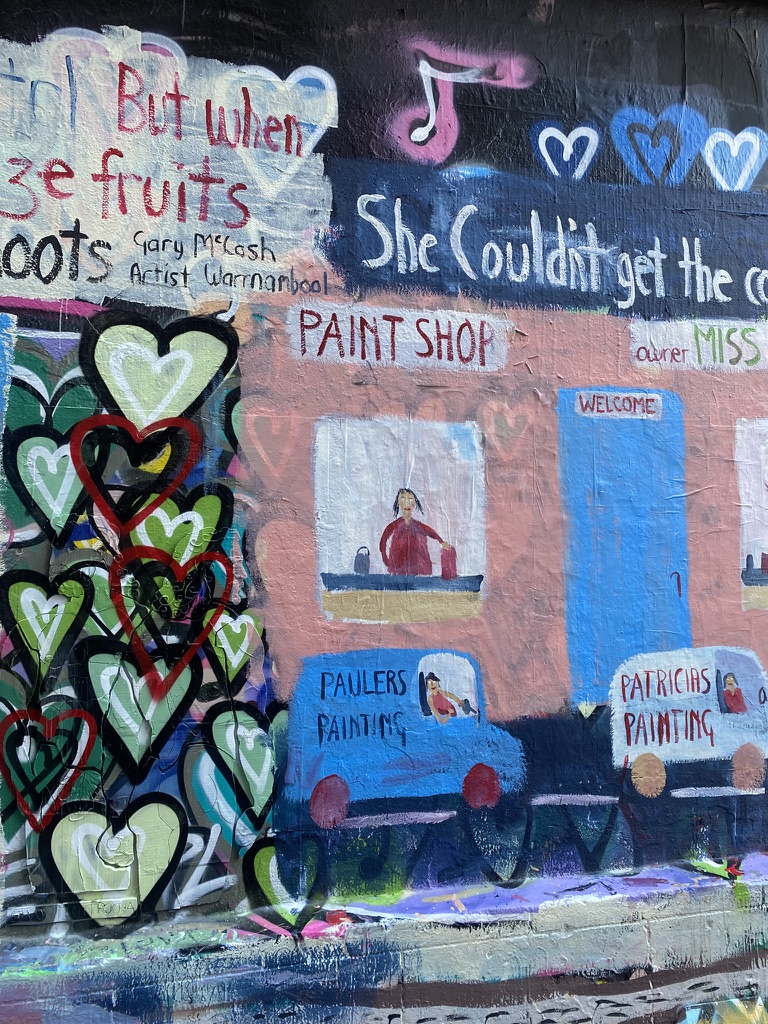 But when
ze fruits
oots
Gary McCosh
Artist Warrnambool
She Couldn't get the co
PAINT SHOP
owner MISS
WELCOME
PAULERS
PAINTING
PATRICIAS
PAINTING